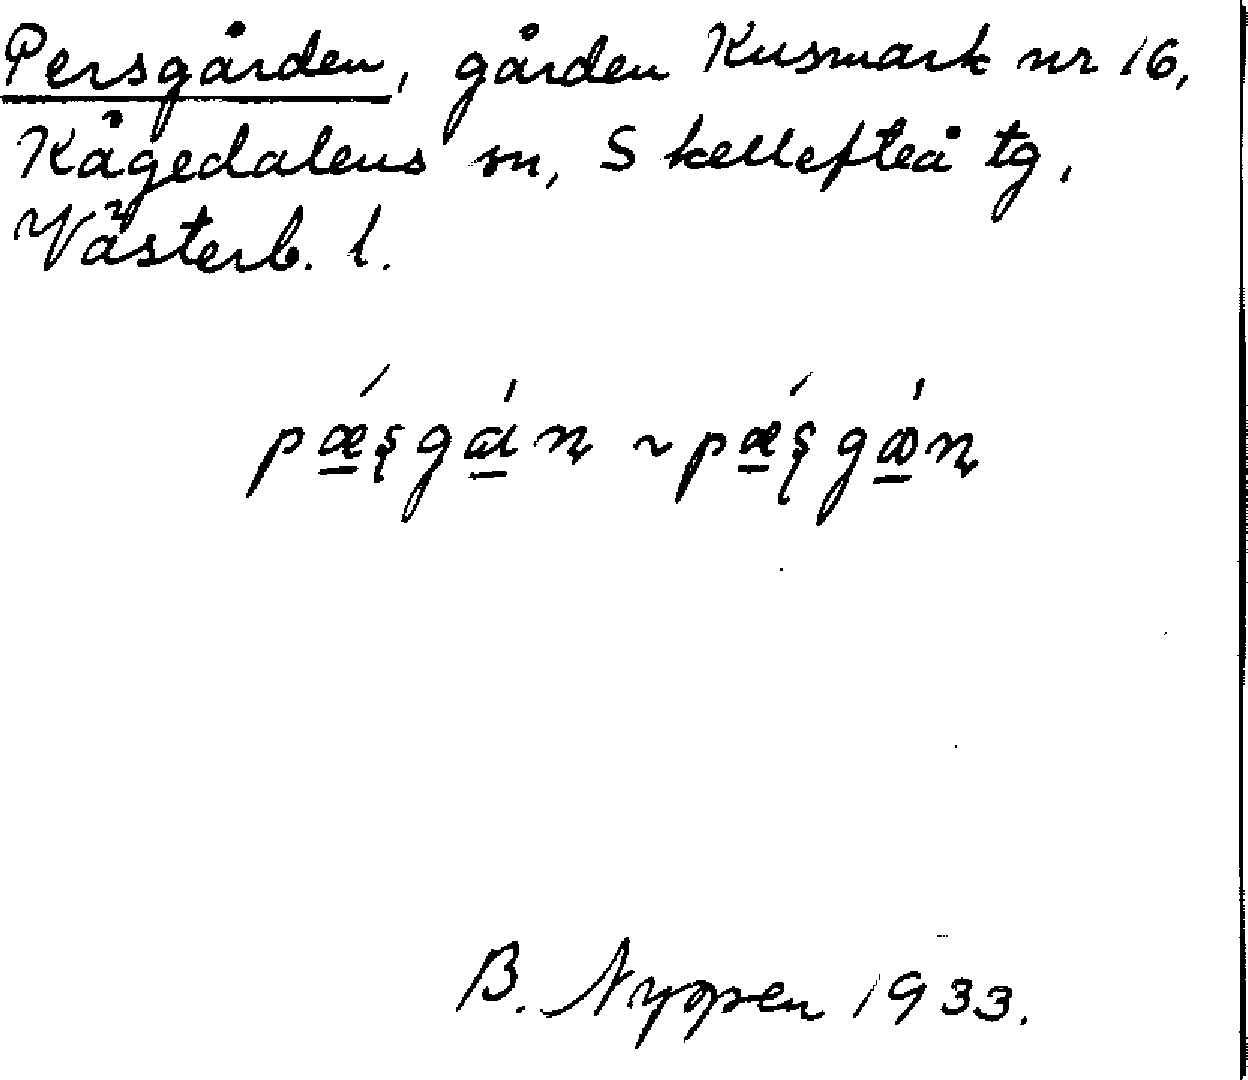 Persgården, gården Kusmark nr 16,
Kågedalens sn, Skellefteå tg,
Västerb. l.
pǽ̱ʂgɑ̱́ɳ ~ pǽ̱ʂgɔ̱́ɳ
B. Nyppen 1933.